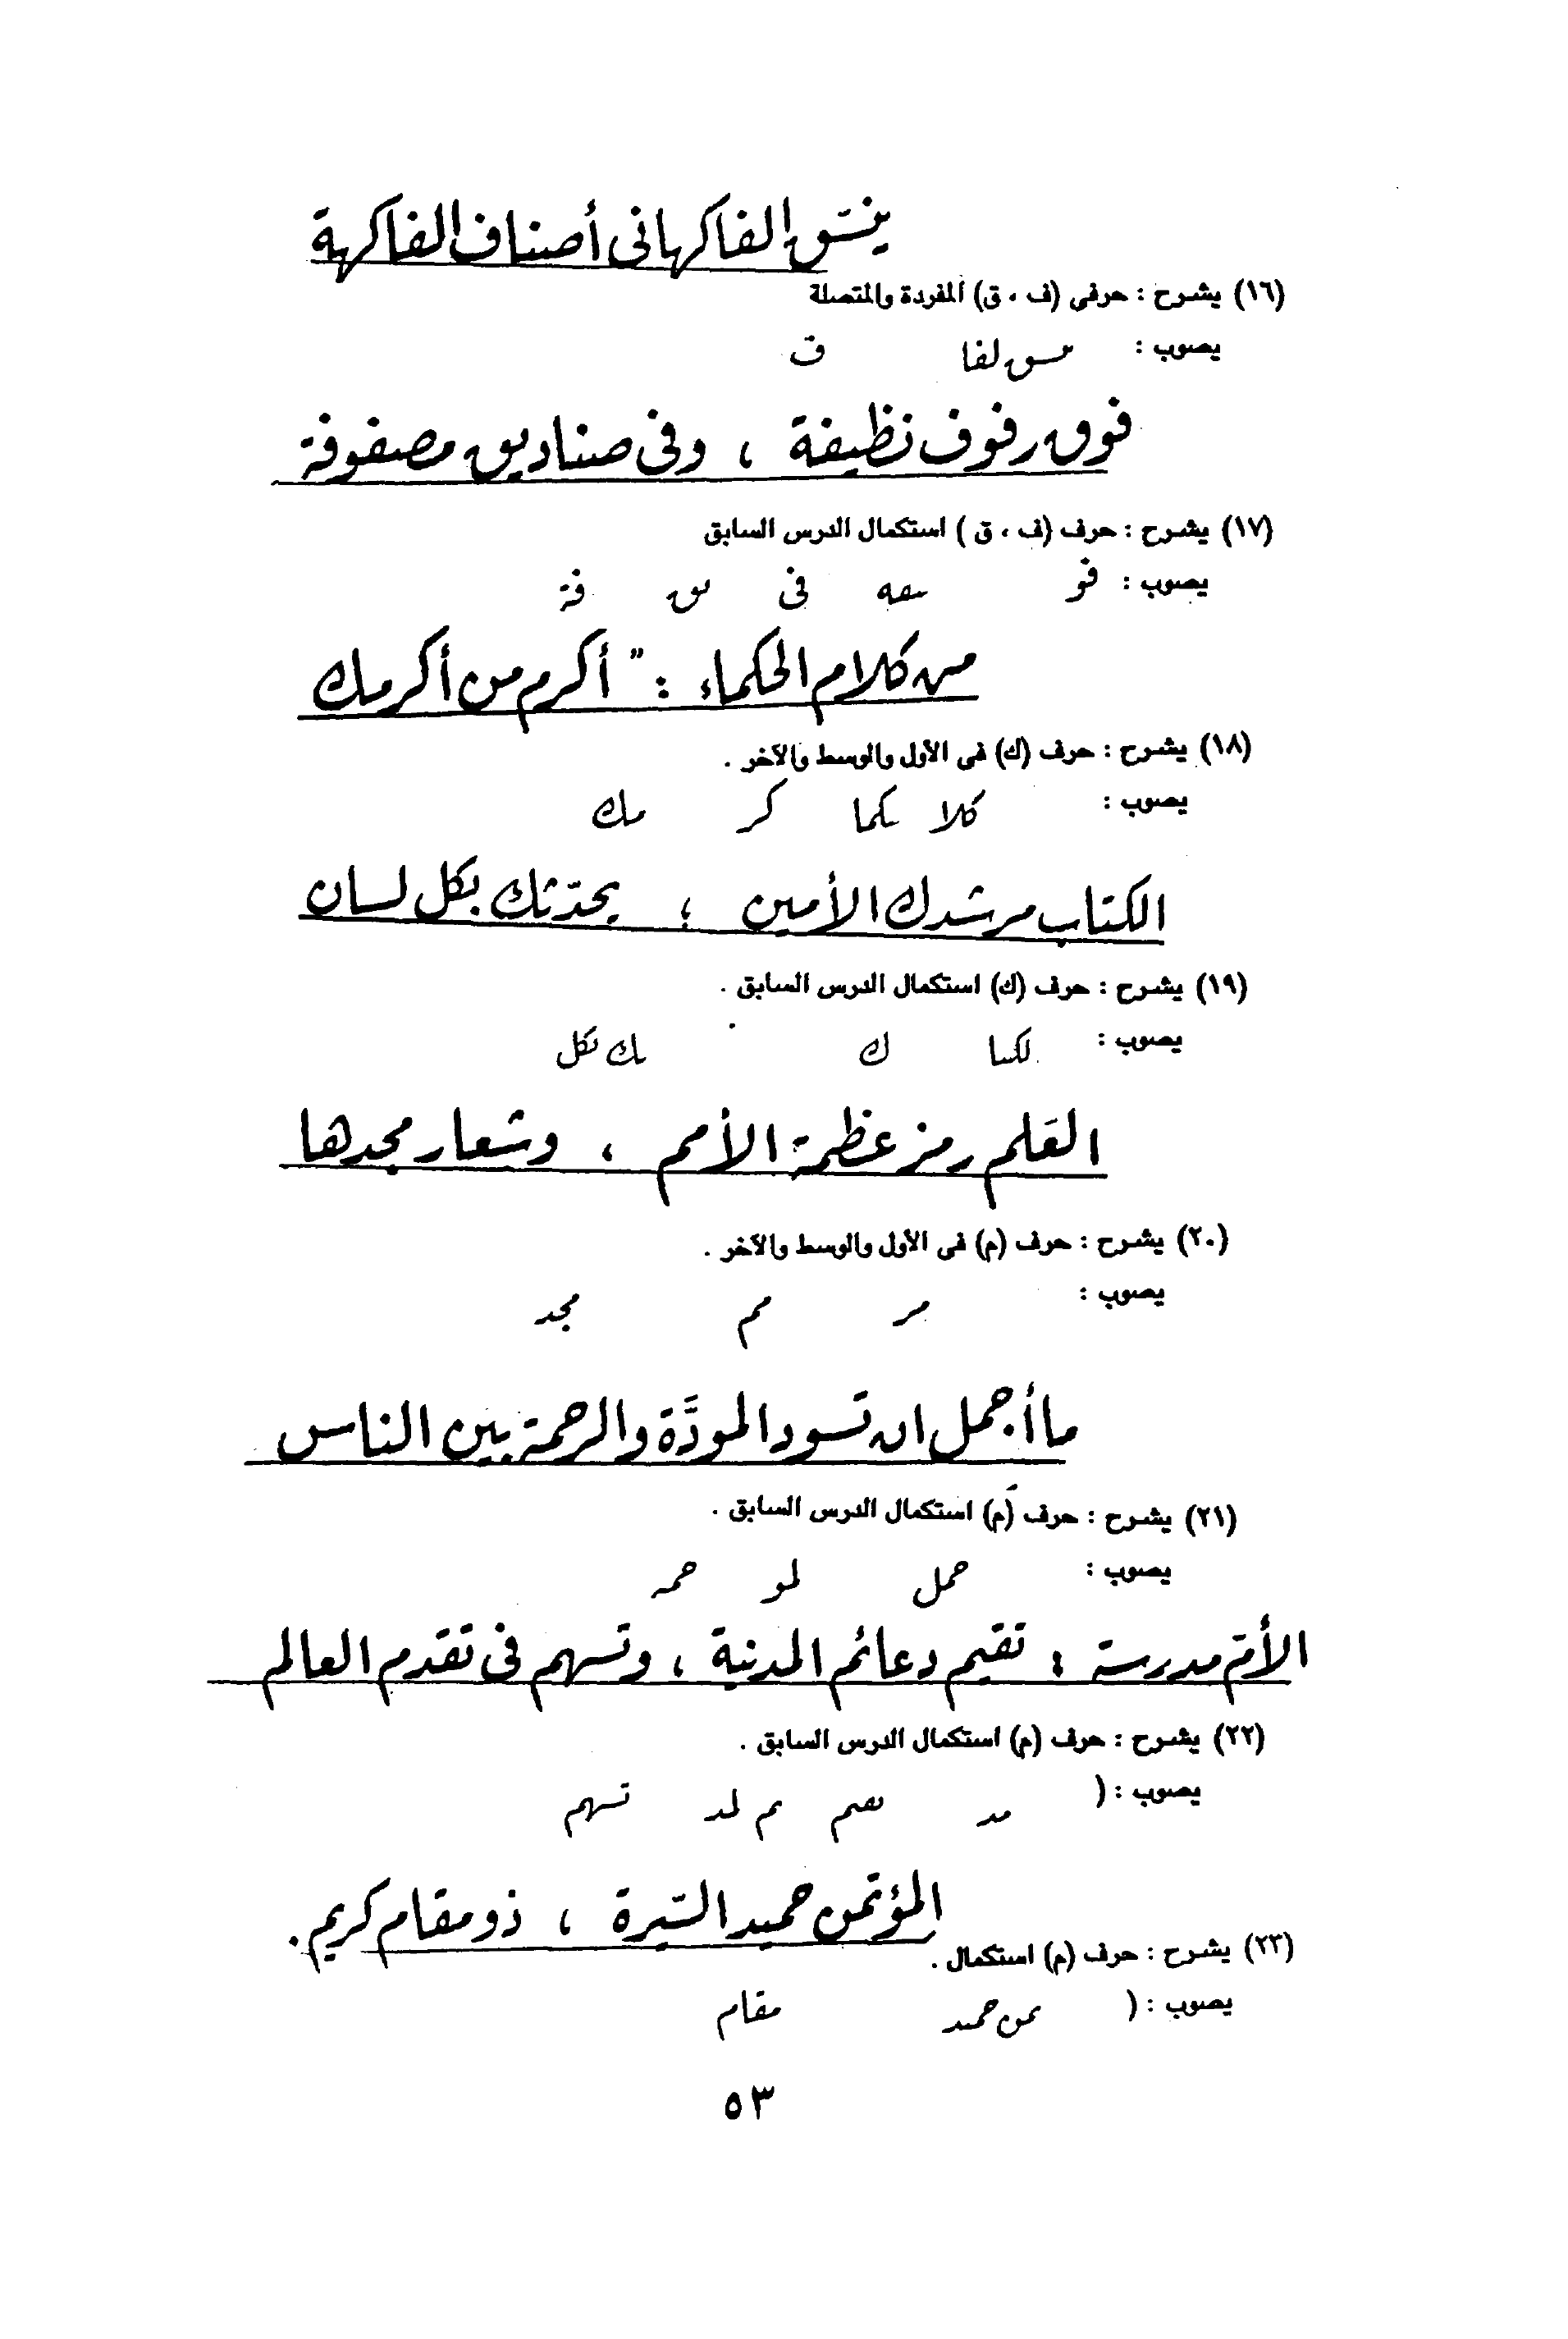 ينسّق الفاكهانى أصناف الفاكهة
(١٦) يشرح : حرفى (ف ، ق) المفردة والمتصلة
يصوب : ق
فوق رفوف نظيفة ، وفى صناديق مصفوفة
(١٧) يشرح : حرف (ف ، ق ) استكمال الدرس السابق
يصوب : فو فى فة
من كلام الحكماء : " أكرم من أكرمك
(١٨) يشرح : حرف (ك) فى الأول والوسط والآخر .
يصوب : كلا كما كر مك
الكتاب مرشدك الأمين ؛ يحدّثك بكل لسان
(١٩) يشرح : حرف (ك) استكمال الدرس السابق .
يصوب : ك
العَلم رمز عظمة الأمم ، وشعار مجدها
(٢٠) يشرح : حرف (م) فى الأول والوسط والآخر .
يصوب : مر مم مجد
ما أجمل ان تسود المودَّة والرحمة بين الناس
(٢١) يشرح : حرف (م) استكمال الدرس السابق .
يصوب : حمل لمو حمه
الأمّ مدرسة : تقيم دعائم المدنية ، وتسهم فى تقدم العالم
(٢٢) يشرح : حرف (م) استكمال الدرس السابق .
يصوب : ( مد لمد تسهم
المؤتمن حميد السّيرة ، ذو مقام كريم .
(٢٣) يشرح : حرف (م) استكمال .
يصوب : ( مقام
٥٣